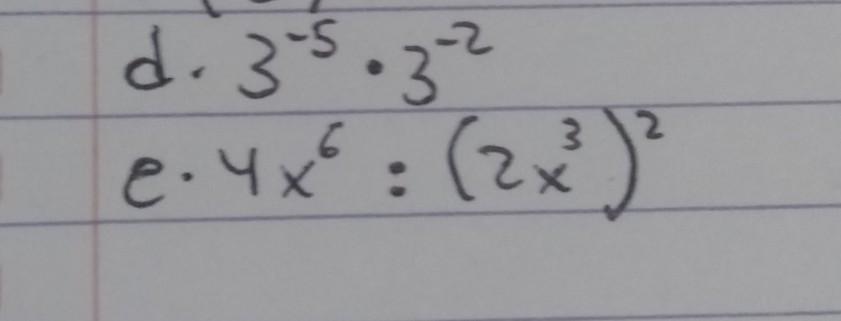 d. 3⁻⁵ · 3⁻²
e. 4x⁶ : (2x³)²